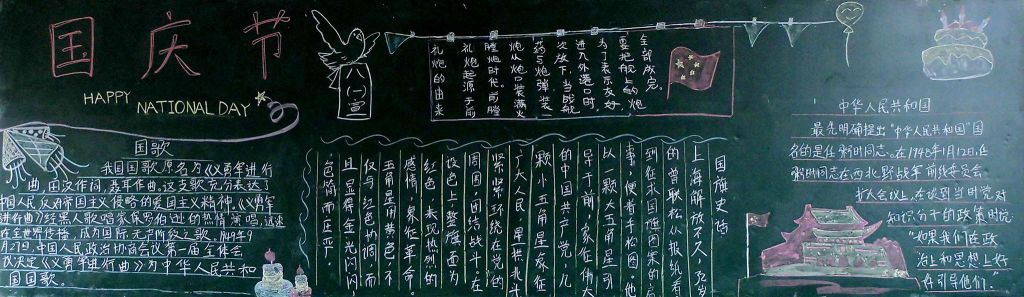 国庆节
HAPPY
NATIONAL DAY
国歌
我国国歌原名为《义勇军进行
曲》,田汉作词,聂耳作曲。这支歌充分表达了
中国人民反对帝国主义侵略的爱国主义精神。《义勇军
进行曲》经黑人歌唱家保罗·伯逊的热情演唱,迅速
在全世界传播,成为国际无产阶级之歌。1949年9
月27日,中国人民政治协商会议第一届全体会
议决定《义勇军进行曲》为中华人民共和
国国歌。
八一宣
礼炮的由来
礼炮起源于前
膛炮时代,前膛
炮从炮口装满火
药与炮弹装一
次放下,当战舰
进入外港口时,
为了表示友好,
要把舰上的炮
全部成完,
国旗史话
上海解放不久,岁
的曾联松从报纸看
到征求国旗图案的启
事,便着手构图。他
以一颗大五角星引
导于前,象征伟大
的中国共产党,几
颗小五角星象征
广大人民,星拱北斗
紧紧环绕在党的
周围团结战斗。在
设色上,整旗面为
红色,表现热烈的
感情,象征革命。
五角星用黄色,不
仅与红色协调,而
且显得金光闪闪,
色简而庄严。
中华人民共和国
最先明确提出"中华人民共和国"国
名的是任弼时同志。在1948年1月12日,任
弼时同志在西北野战军前线委员会
扩大会议上,在谈到当时党对
知识分子的政策时说
"如果我们在政
治上和思想上好
好引导他们。"